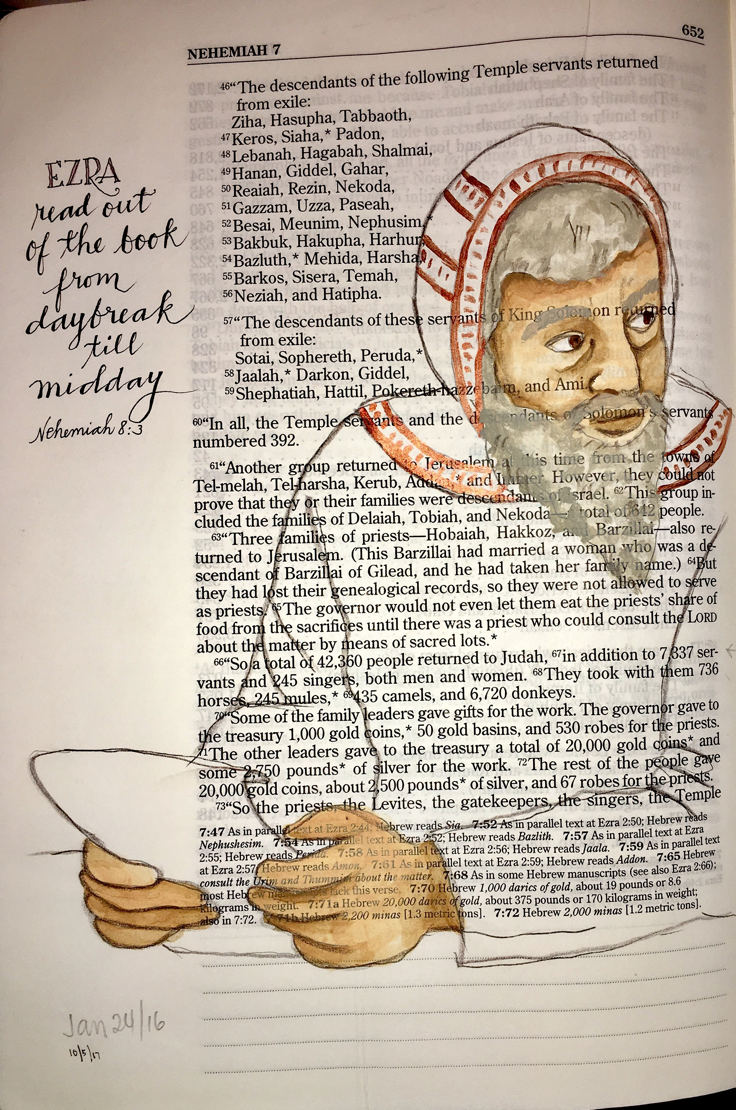 NEHEMIAH 7
652
EZRA
read out
of the book
from
daybreak
till
midday
Nehemiah 8:3
46“The descendants of the following Temple servants returned
from exile:
Ziha, Hasupha, Tabbaoth,
47Keros, Siaha,* Padon,
48Lebanah, Hagabah, Shalmai,
49Hanan, Giddel, Gahar,
50Reaiah, Rezin, Nekoda,
51Gazzam, Uzza, Paseah,
52Besai, Meunim, Nephusim,*
53Bakbuk, Hakupha, Harhur,
54Bazluth,* Mehida, Harsha,
55Barkos, Sisera, Temah,
56Neziah, and Hatipha.
57“The descendants of these servants of King Solomon returned
from exile:
Sotai, Sophereth, Peruda,*
58Jaalah,* Darkon, Giddel,
59Shephatiah, Hattil, Pokereth-hazzebaim, and Ami.
60“In all, the Temple servants and the descendants of Solomon's servants
numbered 392.
61“Another group returned to Jerusalem at this time from the towns of
Tel-melah, Tel-harsha, Kerub, Addan,* and Immer. However, they could not
prove that they or their families were descendants of Israel. 62This group in-
cluded the families of Delaiah, Tobiah, and Nekoda—a total of 642 people.
63“Three families of priests—Hobaiah, Hakkoz, and Barzillai—also re-
turned to Jerusalem. (This Barzillai had married a woman who was a de-
scendant of Barzillai of Gilead, and he had taken her family name.) 64But
they had lost their genealogical records, so they were not allowed to serve
as priests. 65The governor would not even let them eat the priests' share of
food from the sacrifices until there was a priest who could consult the LORD
about the matter by means of sacred lots.*
66“So a total of 42,360 people returned to Judah, 67in addition to 7,337 ser-
vants and 245 singers, both men and women. 68They took with them 736
horses, 245 mules,* 69435 camels, and 6,720 donkeys.
70“Some of the family leaders gave gifts for the work. The governor gave to
the treasury 1,000 gold coins,* 50 gold basins, and 530 robes for the priests.
71The other leaders gave to the treasury a total of 20,000 gold coins* and
some 2,750 pounds* of silver for the work. 72The rest of the people gave
20,000 gold coins, about 2,500 pounds* of silver, and 67 robes for the priests.
73“So the priests, the Levites, the gatekeepers, the singers, the Temple
7:47 As in parallel text at Ezra 2:44; Hebrew reads Sia. 7:52 As in parallel text at Ezra 2:50; Hebrew reads
Nephushesim. 7:54 As in parallel text at Ezra 2:52; Hebrew reads Bazlith. 7:57 As in parallel text at Ezra
2:55; Hebrew reads Perida. 7:58 As in parallel text at Ezra 2:56; Hebrew reads Jaala. 7:59 As in parallel text
at Ezra 2:57; Hebrew reads Amon. 7:61 As in parallel text at Ezra 2:59; Hebrew reads Addon. 7:65 Hebrew
consult the Urim and Thummim about the matter. 7:68 As in some Hebrew manuscripts (see also Ezra 2:66);
most Hebrew manuscripts lack this verse. 7:70 Hebrew 1,000 darics of gold, about 19 pounds or 8.6
kilograms in weight. 7:71a Hebrew 20,000 darics of gold, about 375 pounds or 170 kilograms in weight;
also in 7:72. 7:71b Hebrew 2,200 minas [1.3 metric tons]. 7:72 Hebrew 2,000 minas [1.2 metric tons].
Jan 24/16
10/5/17